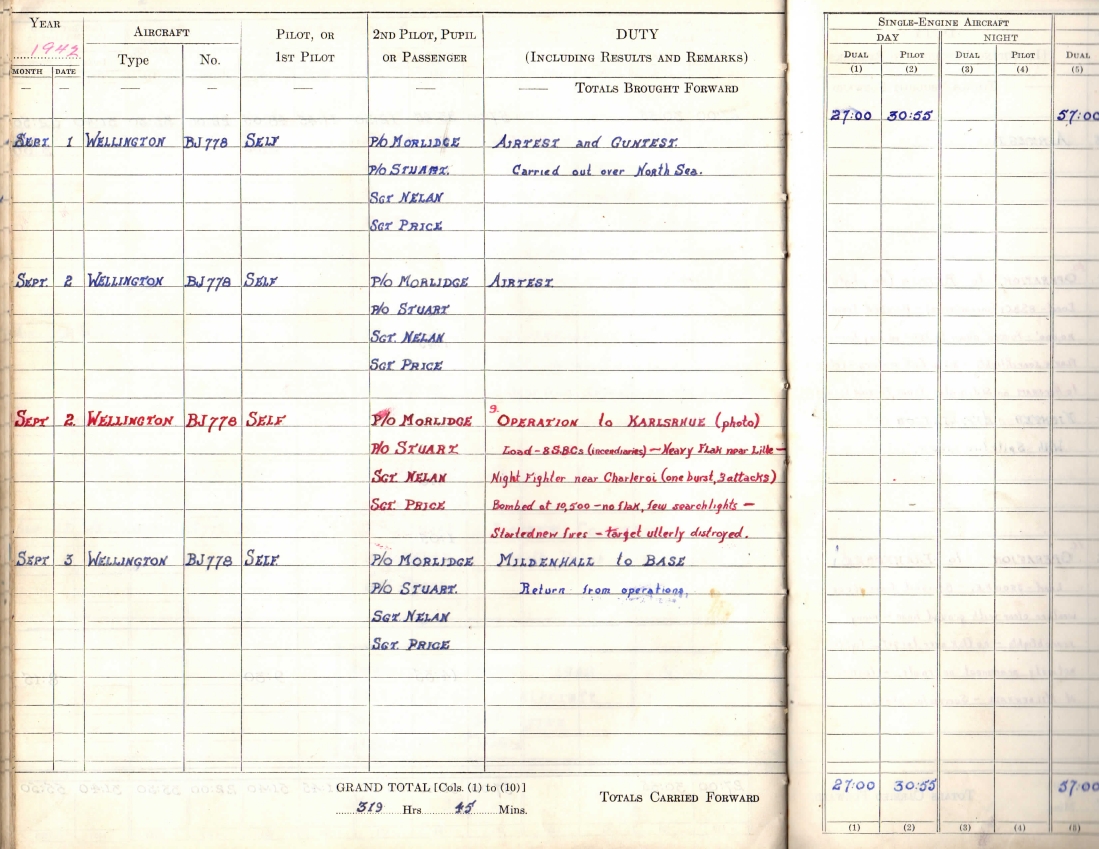 YEAR
1942
AIRCRAFT
PILOT, OR
1ST PILOT
2ND PILOT, PUPIL
OR PASSENGER
DUTY
(INCLUDING RESULTS AND REMARKS)
Type
No.
MONTH
DATE
— — — — — — — TOTALS BROUGHT FORWARD
SEPT. 1 WELLINGTON BJ778 SELF P/O MORLIDGE AIRTEST and GUNTEST.
P/O STUART. Carried out over North Sea.
SGT NELAN
SGT PRICE
SEPT. 2 WELLINGTON BJ778 SELF P/O MORLIDGE AIRTEST.
P/O STUART
SGT. NELAN
SGT PRICE
SEPT 2. WELLINGTON BJ778 SELF P/O MORLIDGE 9. OPERATION to KARLSRHUE (photo)
P/O STUART. Load - 8 S.B.C.s (incendiaries) — Heavy Flak near Lille —
SGT. NELAN Night Fighter near Charleroi (one burst, 3 attacks)
SGT. PRICE Bombed at 10,500 — no flak, few searchlights —
Started new fires — target utterly distroyed.
SEPT 3 WELLINGTON BJ778 SELF. P/O MORLIDGE MILDENHALL to BASE
P/O STUART. Return from operations.
SGT NELAN
SGT. PRICE
GRAND TOTAL [Cols. (1) to (10)]
319 Hrs. 45 Mins.
TOTALS CARRIED FORWARD
SINGLE-ENGINE AIRCRAFT
DAY NIGHT
DUAL PILOT DUAL PILOT DUAL
(1) (2) (3) (4) (5)
27:00 30:55 57:00
27:00 30:55 57:00
(1) (2) (3) (4) (5)